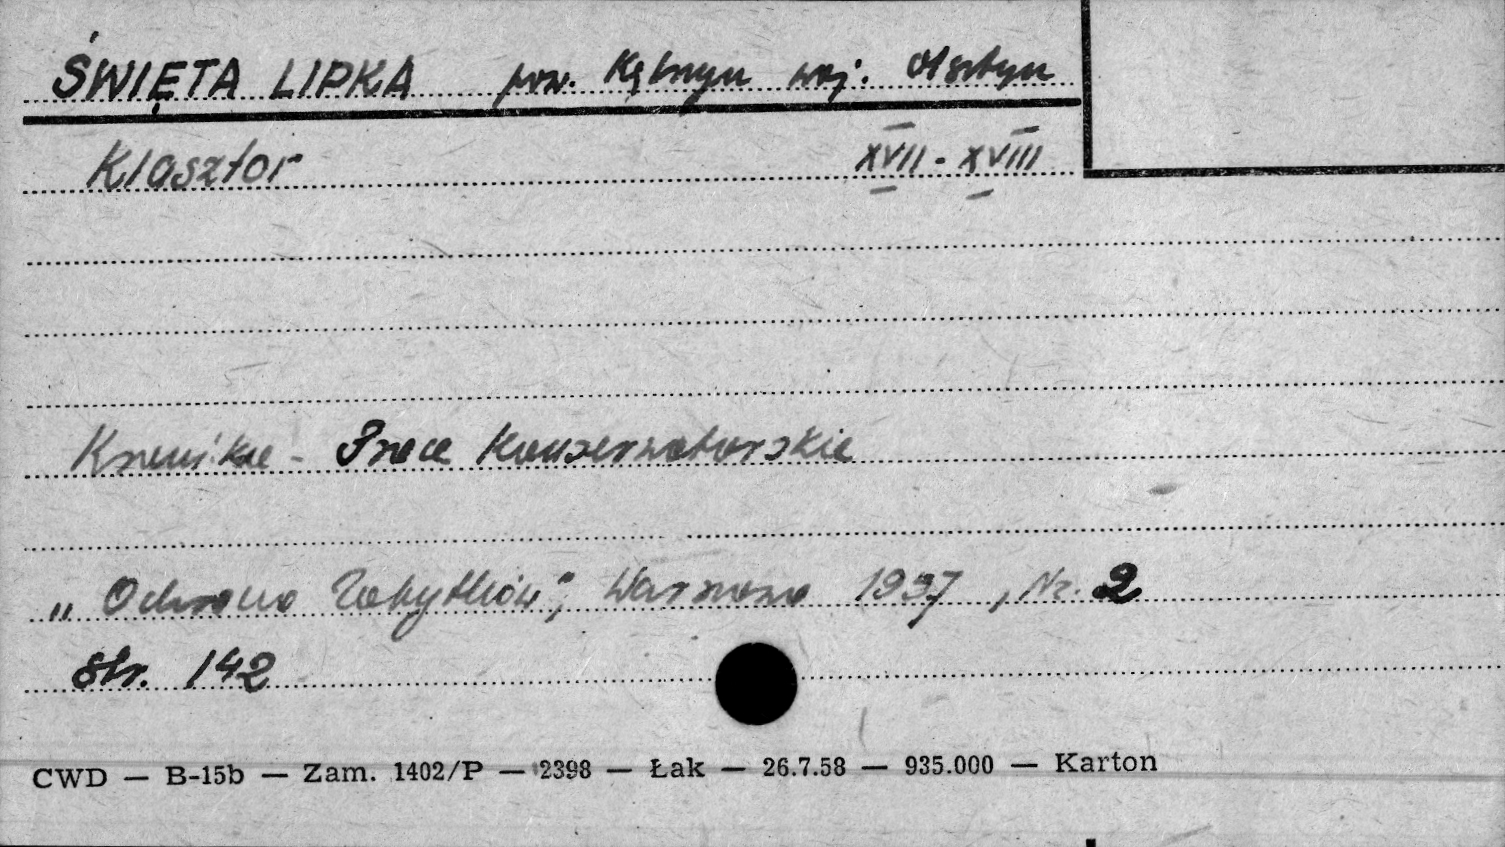 ŚWIĘTA LIPKA pow. Kętrzyn woj. Olsztyn
Klasztor XVII - XVIII
Kronika - Prace Konserwatorskie
"Ochrona Zabytków", Warszawa 1957, Nr. 2
str. 142
CWD — B-15b — Zam. 1402/P — 2398 — Łak — 26.7.58 — 935.000 — Karton